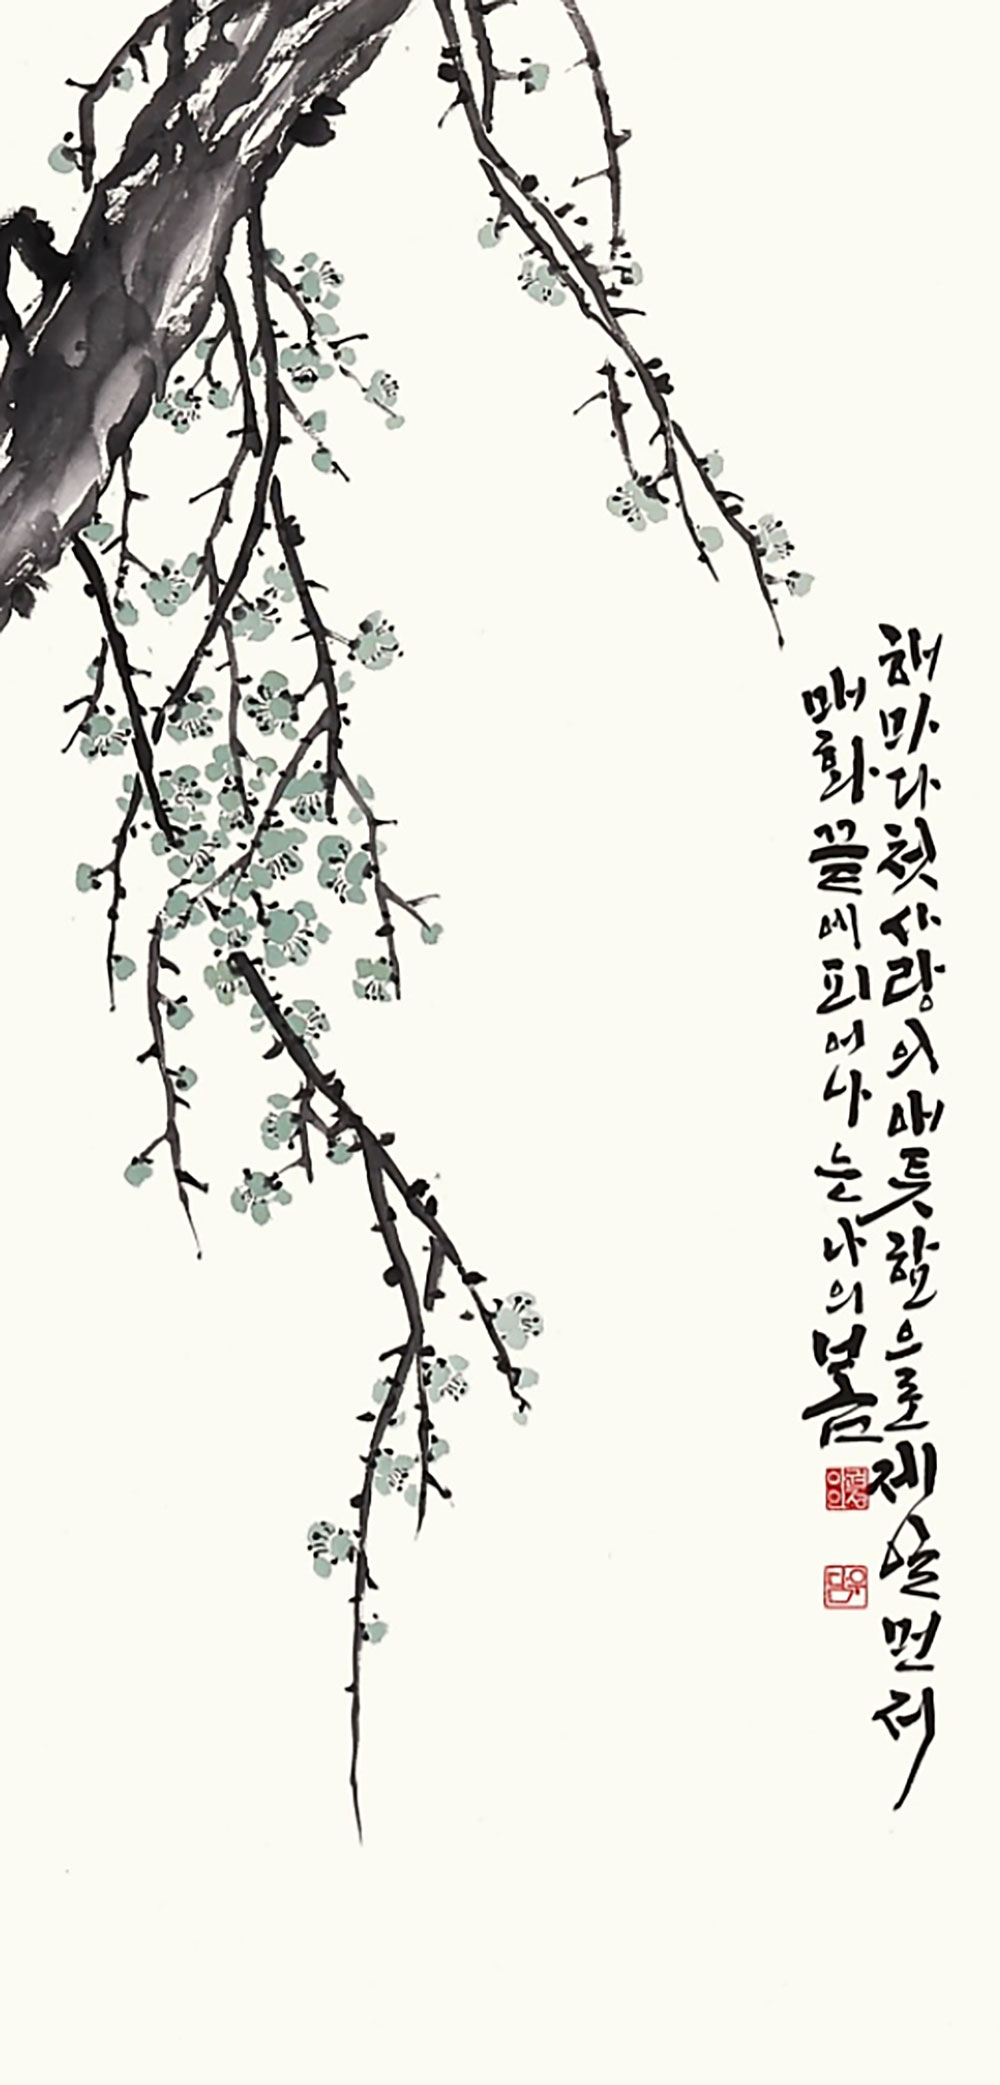 해마다 첫사랑의 애틋함으로 제일 먼저
매화 끝에 피어나는 나의 봄